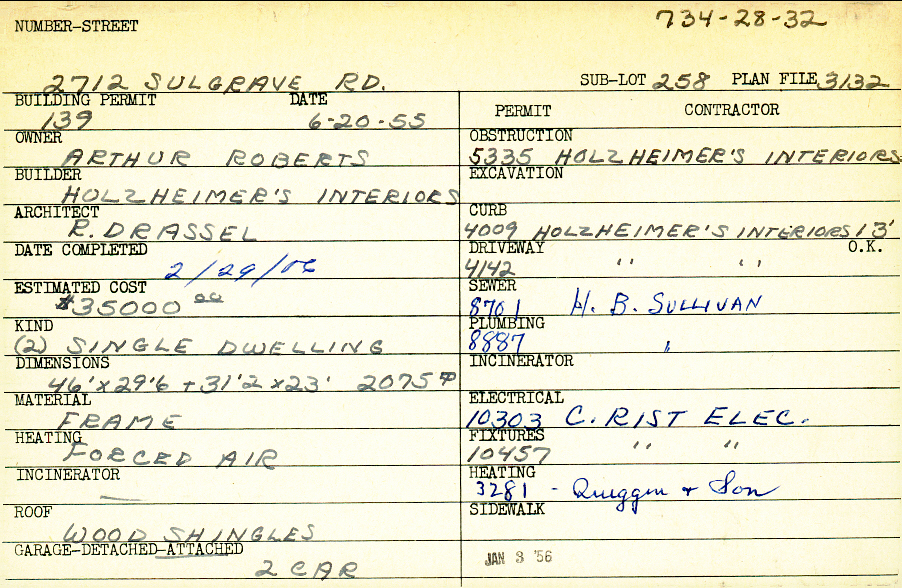 734-28-32
NUMBER-STREET
2712 SULGRAVE RD. SUB-LOT 258 PLAN FILE 3132
BUILDING PERMIT DATE
139 6-20-55
OWNER
ARTHUR ROBERTS
BUILDER
HOLZHEIMER'S INTERIORS
ARCHITECT
R. DRASSEL
DATE COMPLETED
2/29/56
ESTIMATED COST
$35000 00
KIND
(2) SINGLE DWELLING
DIMENSIONS
46'x29'6 + 31'2 x 23' 2075
MATERIAL
FRAME
HEATING
FORCED AIR
INCINERATOR
—
ROOF
WOOD SHINGLES
GARAGE-DETACHED-ATTACHED
2 CAR
PERMIT CONTRACTOR
OBSTRUCTION
5335 HOLZHEIMER'S INTERIORS
EXCAVATION
CURB
4009 HOLZHEIMER'S INTERIORS 13'
DRIVEWAY O.K.
4142 " "
SEWER
8701 H. B. SULLIVAN
PLUMBING
8887 "
INCINERATOR
ELECTRICAL
10303 C. RIST ELEC.
FIXTURES
10457 " "
HEATING
3281 - Quiggin + Son
SIDEWALK
JAN 3 '56